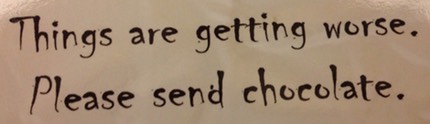 Things are getting worse.
Please send chocolate.